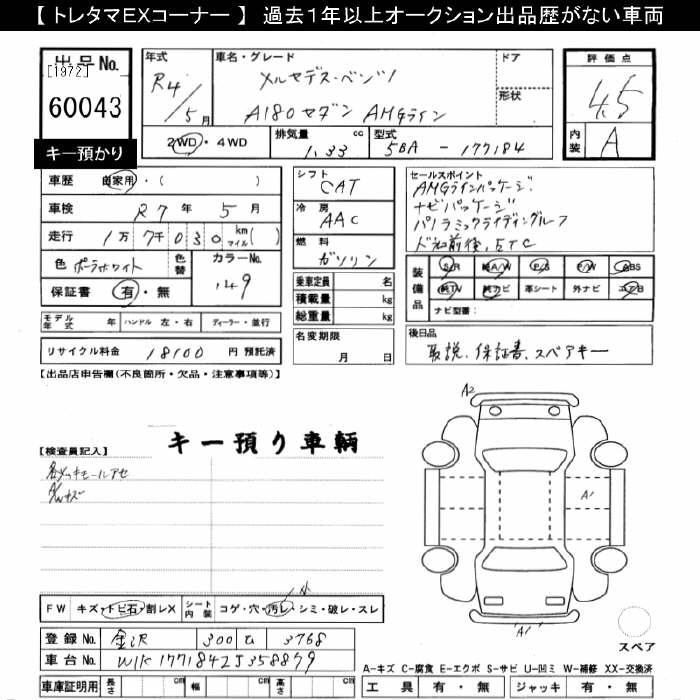 【 トレタマEXコーナー 】 過去１年以上オークション出品歴がない車両
出品No.
[1972]
60043
キー預かり
年式
R4/5月
車名・グレード
メルセデス・ベンツ
A180セダン AMGライン
ドア
形状
評価点
4.5
内装
A
2WD・4WD
排気量 cc
1.33
型式
5BA - 177184
車歴 自家用・( )
車検 R7年 5月
走行 1万7千030 km マイル( )
色 ポーラホワイト
色替
カラーNo.
149
保証書 有・無
モデル年式 年 ハンドル 左・右 ディーラー・並行
リサイクル料金 18100 円 預託済
シフト
CAT
冷房
AAC
燃料
ガソリン
乗車定員 名
積載量 kg
総重量 kg
名変期限
月 日
セールスポイント
AMGラインパッケージ
ナビパッケージ
パノラミックスライディングルーフ
ドラレコ前後、ETC
装備品
S/R 純A/W P/S P/W ABS
純TV 純ナビ 革シート 外ナビ エアB
ナビ型番:
後日品
取説、保証書、スペアキー
【出品店申告欄(不良箇所・欠品・注意事項等)】
キー預り車輌
【検査員記入】
A/Wキズ
A2
A1
A1
スペア
FW キズ・トビ石・割レX
シート内装 コゲ・穴・汚レ・シミ・破レ・スレ
小
登録No. 金沢 300 ひ 3768
車台No. W1K1771842J358879
車庫証明用 長さ cm 幅 cm 高さ cm
A-キズ C-腐食 E-エクボ S-サビ U-凹ミ W-補修 XX-交換済
工具 有・無 ジャッキ 有・無